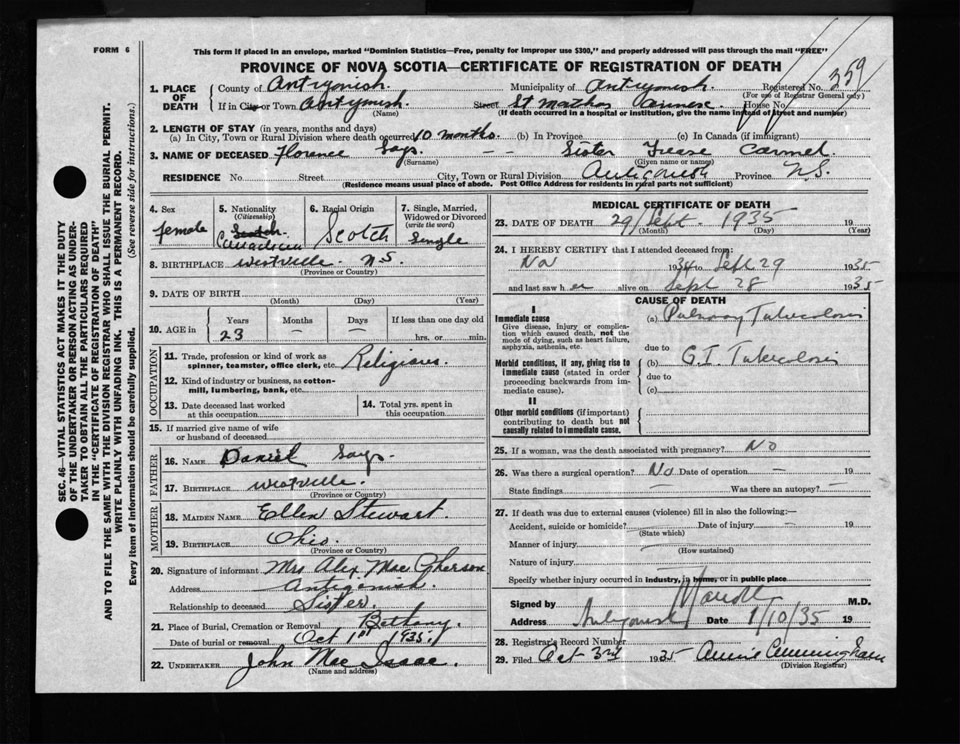 FORM 6
This form if placed in an envelope, marked "Dominion Statistics—Free, penalty for improper use $300," and properly addressed will pass through the mail "FREE"
PROVINCE OF NOVA SCOTIA—CERTIFICATE OF REGISTRATION OF DEATH
SEC. 46—VITAL STATISTICS ACT MAKES IT THE DUTY
OF THE UNDERTAKER OR PERSON ACTING AS UNDER-
TAKER TO OBTAIN ALL THE PARTICULARS REQUIRED
IN THE "CERTIFICATE OF REGISTRATION OF DEATH"
AND TO FILE THE SAME WITH THE DIVISION REGISTRAR WHO SHALL ISSUE THE BURIAL PERMIT.
WRITE PLAINLY WITH UNFADING INK. THIS IS A PERMANENT RECORD.
Every item of information should be carefully supplied. (See reverse side for instructions.)
1. PLACE OF DEATH County of Antigonish. Municipality of Antigonish. Registered No. 359
(For use of Registrar General only)
If in City or Town Antigonish. Street St Marthas House No.
(Name) (If death occurred in a hospital or institution, give the name instead of street and number)
2. LENGTH OF STAY (in years, months and days)
(a) In City, Town or Rural Division where death occurred 10 months. (b) In Province (c) In Canada (if immigrant)
3. NAME OF DECEASED Florence Says. -- Sister Carmel.
(Surname) (Given name or names)
RESIDENCE No. Street City, Town or Rural Division Antigonish Province N.S.
(Residence means usual place of abode. Post Office Address for residents in rural parts not sufficient)
4. Sex female
5. Nationality (Citizenship) Scotch Canadian
6. Racial Origin Scotch
7. Single, Married, Widowed or Divorced (write the word) Single
8. BIRTHPLACE Westville N.S.
(Province or Country)
9. DATE OF BIRTH
(Month) (Day) (Year)
10. AGE in Years 23 Months — Days — If less than one day old hrs. or min.
OCCUPATION
11. Trade, profession or kind of work as spinner, teamster, office clerk, etc. Religious.
12. Kind of industry or business, as cotton-mill, lumbering, bank, etc.
13. Date deceased last worked at this occupation
14. Total yrs. spent in this occupation
15. If married give name of wife or husband of deceased
FATHER
16. NAME Daniel Says.
17. BIRTHPLACE Westville.
(Province or Country)
MOTHER
18. MAIDEN NAME Ellen Stewart.
19. BIRTHPLACE Ohio.
(Province or Country)
20. Signature of informant Mrs Alex Mac Gherson
Address Antigonish
Relationship to deceased Sister.
21. Place of Burial, Cremation or Removal Bethany.
Date of burial or removal Oct 1st 1935.
22. UNDERTAKER John Mac Isaac.
(Name and address)
MEDICAL CERTIFICATE OF DEATH
23. DATE OF DEATH 29/Sept. 1935 19
(Month) (Day) (Year)
24. I HEREBY CERTIFY that I attended deceased from:
Nov 1934 to Sept 29 1935
and last saw her alive on Sept 28 1935
CAUSE OF DEATH
I
Immediate cause
Give disease, injury or complication which caused death, not the mode of dying, such as heart failure, asphyxia, asthenia, etc.
(a) Pulmonary Tuberculosis
due to
Morbid conditions, if any, giving rise to immediate cause (stated in order proceeding backwards from immediate cause).
(b) G.I. Tuberculosis
due to
(c)
II
Other morbid conditions (if important) contributing to death but not causally related to immediate cause.
25. If a woman, was the death associated with pregnancy? No
26. Was there a surgical operation? No Date of operation — 19
State findings — Was there an autopsy? —
27. If death was due to external causes (violence) fill in also the following:—
Accident, suicide or homicide? Date of injury — 19
(State which)
Manner of injury
(How sustained)
Nature of injury
Specify whether injury occurred in industry, in home, or in public place
Signed by M.D.
Address Antigonish Date 1/10/35 19
28. Registrar's Record Number
29. Filed Oct 3rd 1935 Annie Cunningham
(Division Registrar)